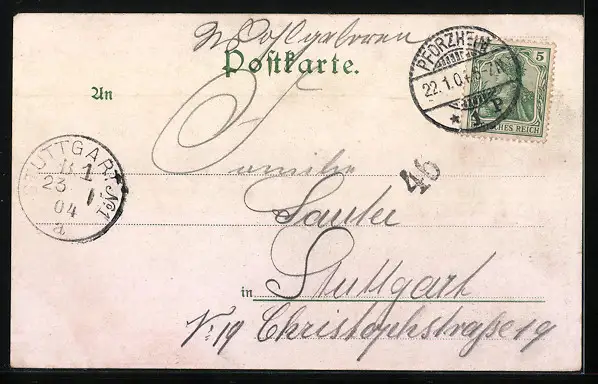 Wohlgeboren
Postkarte.
PFORZHEIM
22.1.04. 6-7.N.
* 1 P
5
DEUTSCHES REICH
An
Familie
STUTTGART No1
B1
23
1
04
a
46
Sauter
in Stuttgart
No: 19 Christophstraße 19